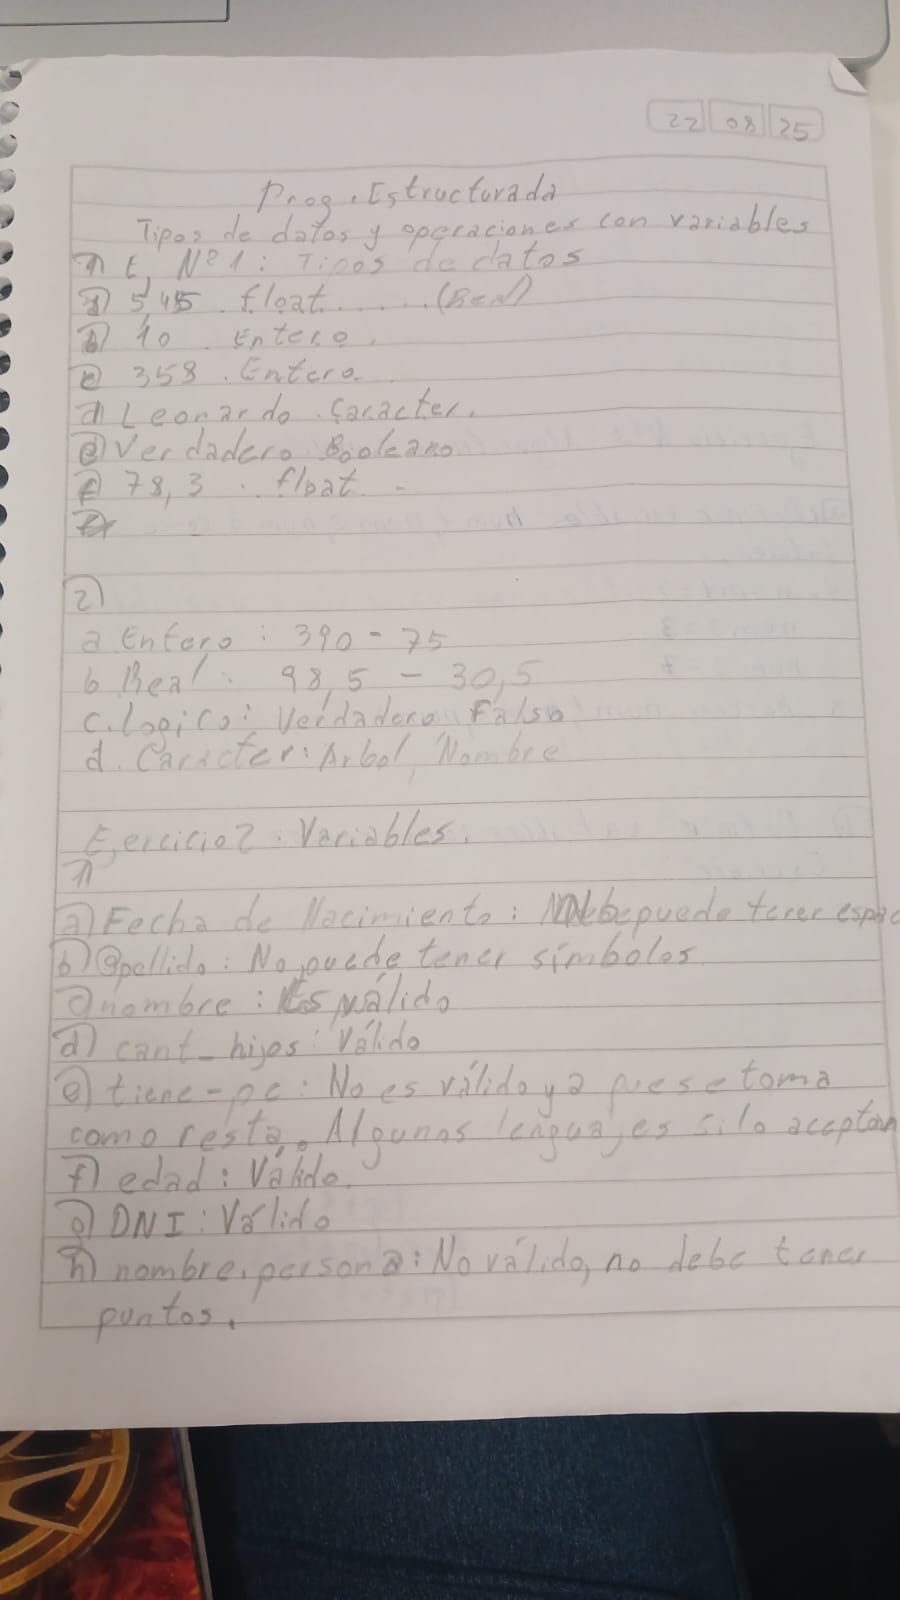 22 08 25
Prog. Estructurada
Tipos de datos y operaciones con variables
1) E, Nº1: Tipos de datos
a) 5,45 float ...... (Real)
b) 10 Entero.
c) 358 . Entero.
d) Leonardo . Caracter.
e) Verdadero Booleano
f) 78,3 . float -
2)
a Entero : 390 - 75
b Real : 98,5 - 30,5
c. logico : Verdadero, Falso
d. Caracter: Arbol, Nombre
Ejercicio 2. Variables.
1)
a) Fecha de Nacimiento : puede tener espac
b) @pellido : No puede tener símbolos
c) nombre : Es válido
d) cant_hijos : Válido
e) tiene-pc : No es válido ya que se toma
como resta. Algunos lenguajes si lo aceptan
f) edad : Válido.
g) DNI : Válido
h) nombre.persona : No válido, no debe tener
puntos.